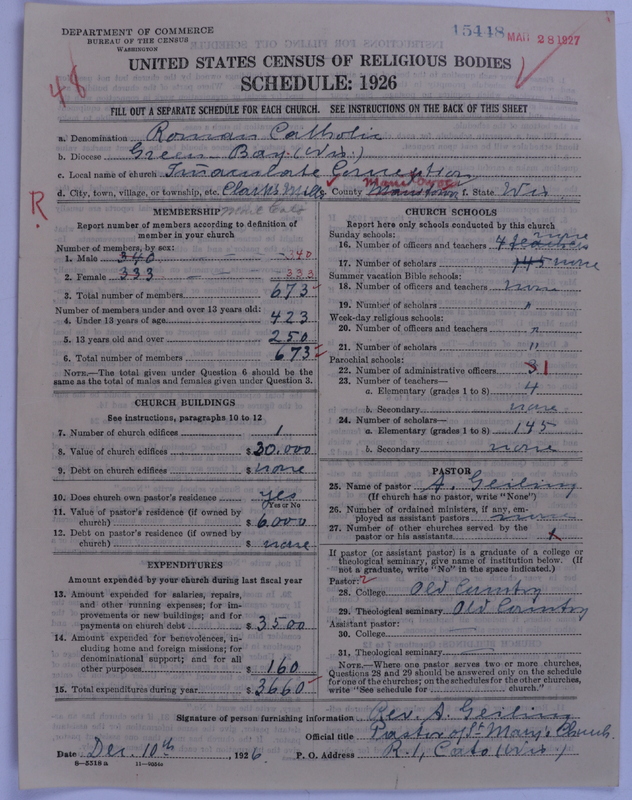 DEPARTMENT OF COMMERCE
BUREAU OF THE CENSUS
WASHINGTON
15448 MAR 28 1927
UNITED STATES CENSUS OF RELIGIOUS BODIES
SCHEDULE: 1926
48
FILL OUT A SEPARATE SCHEDULE FOR EACH CHURCH. SEE INSTRUCTIONS ON THE BACK OF THIS SHEET
a. Denomination Roman Catholic
b. Diocese Green Bay (Wis.)
c. Local name of church Immaculate Conception
d. City, town, village, or township, etc. Clarks Mills County Manitowoc f. State Wis
R
MEMBERSHIP
Report number of members according to definition of
member in your church
Number of members, by sex:
1. Male 340 340
2. Female 333 333
3. Total number of members 673
Number of members under and over 13 years old:
4. Under 13 years of age 423
5. 13 years old and over 250
6. Total number of members 673
NOTE.—The total given under Question 6 should be
same as the total of males and females given under Question 3.
CHURCH BUILDINGS
See instructions, paragraphs 10 to 12
7. Number of church edifices 1
8. Value of church edifices $30.000
9. Debt on church edifices $ none
10. Does church own pastor's residence yes
(Yes or No)
11. Value of pastor's residence (if owned by
church) $ 6.000
12. Debt on pastor's residence (if owned by
church) $ none
EXPENDITURES
Amount expended by your church during last fiscal year
13. Amount expended for salaries, repairs,
and other running expenses; for im-
provements or new buildings; and for
payments on church debt $ 3500
14. Amount expended for benevolences, in-
cluding home and foreign missions; for
denominational support; and for all
other purposes $ 160
15. Total expenditures during year $ 3660
CHURCH SCHOOLS
Report here only schools conducted by this church
Sunday schools:
16. Number of officers and teachers 4 teachers none
17. Number of scholars 145 none
Summer vacation Bible schools:
18. Number of officers and teachers none
19. Number of scholars "
Week-day religious schools:
20. Number of officers and teachers "
21. Number of scholars "
Parochial schools:
22. Number of administrative officers 1
23. Number of teachers—
a. Elementary (grades 1 to 8) 4
b. Secondary none
24. Number of scholars—
a. Elementary (grades 1 to 8) 145
b. Secondary none
PASTOR
25. Name of pastor A. Geiling
(If church has no pastor, write "None")
26. Number of ordained ministers, if any, em-
ployed as assistant pastors none
27. Number of other churches served by the
pastor or his assistants
If pastor (or assistant pastor) is a graduate of a college or
theological seminary, give name of institution below. (If
not a graduate, write "No" in the space indicated.)
Pastor: 2
28. College Old Country
29. Theological seminary Old Country
Assistant pastor:
30. College —
31. Theological seminary —
NOTE.—Where one pastor serves two or more churches,
Questions 28 and 29 should be answered only on the schedule
for one of the churches; on the schedules for the other churches,
write "See schedule for church."
Signature of person furnishing information Rev. A. Geiling
Official title Pastor of St Mary's Church.
Date Dec. 10th, 1926 P. O. Address R. 1, Cato (Wis.)
8—5318 a